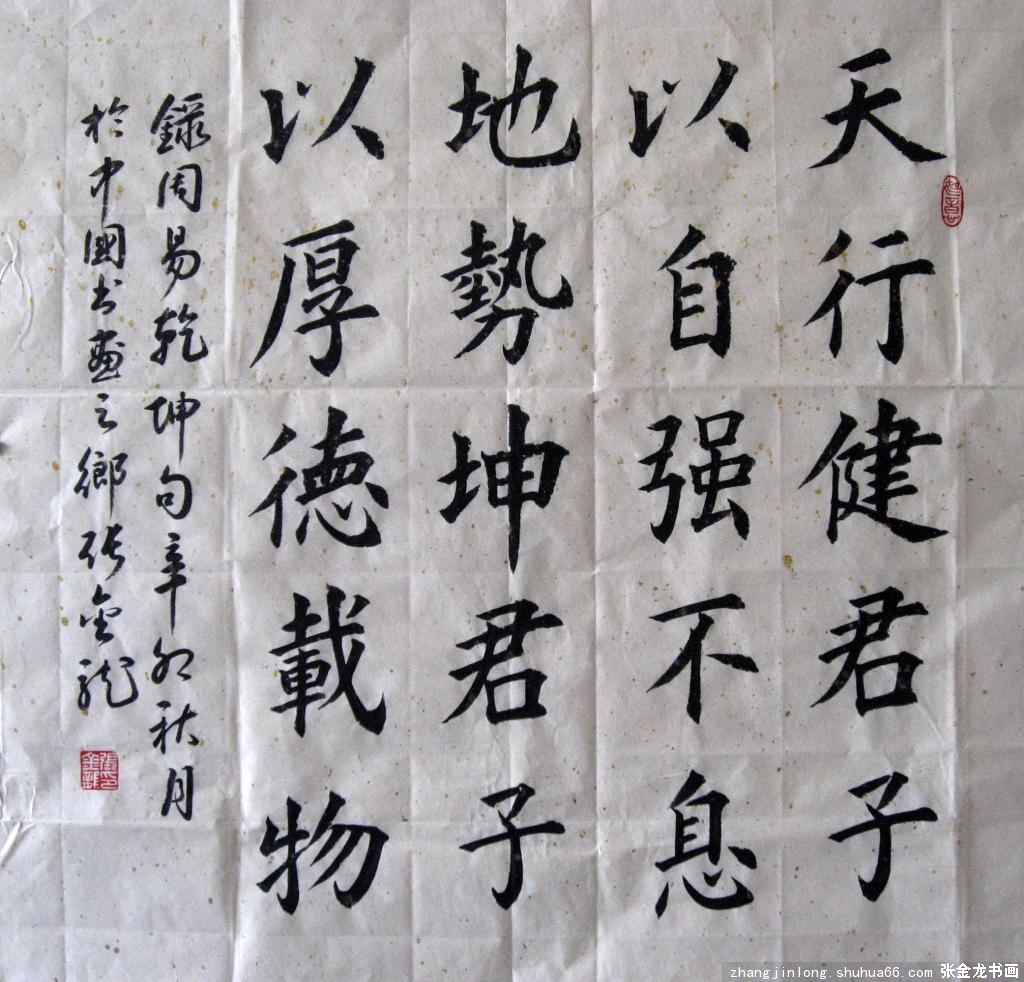 天行健君子
以自强不息
地勢坤君子
以厚德載物
錄周易乾坤句辛卯秋月
於中國书畫之鄉张金龙
張金龍印
zhangjinlong.shuhua66.com 张金龙书画